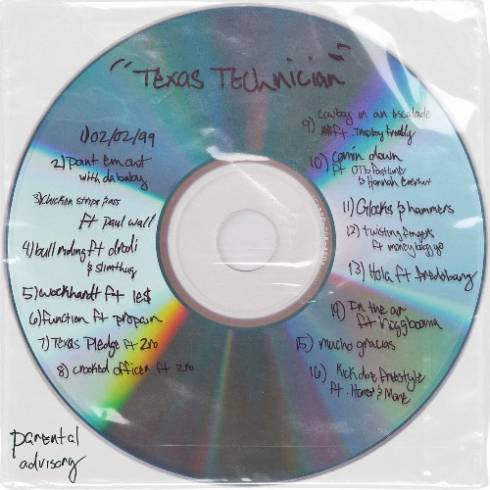 "Texas Technician"
1) 02/02/99
2) Paint Em out
with da baby
3) Chicken strips pass
ft Paul Wall
4) bull riding ft drodi
& slimthug
5) wockhardt ft le$
6) function ft propain
7) Texas Pledge ft Zro
8) crooked officer ft zro
9) cowboy in an escalade
ft. Trapboy Freddy
10) comin down
ft OTB Fastlane
& Hannah Everhart
11) Glocks & hammers
12) twisting fingers
ft moneybagg yo
13) Hola ft fredobang
14) In the air
ft
15) mucho gracias
16) Kickdoe freestyle
ft.
parental
advisory